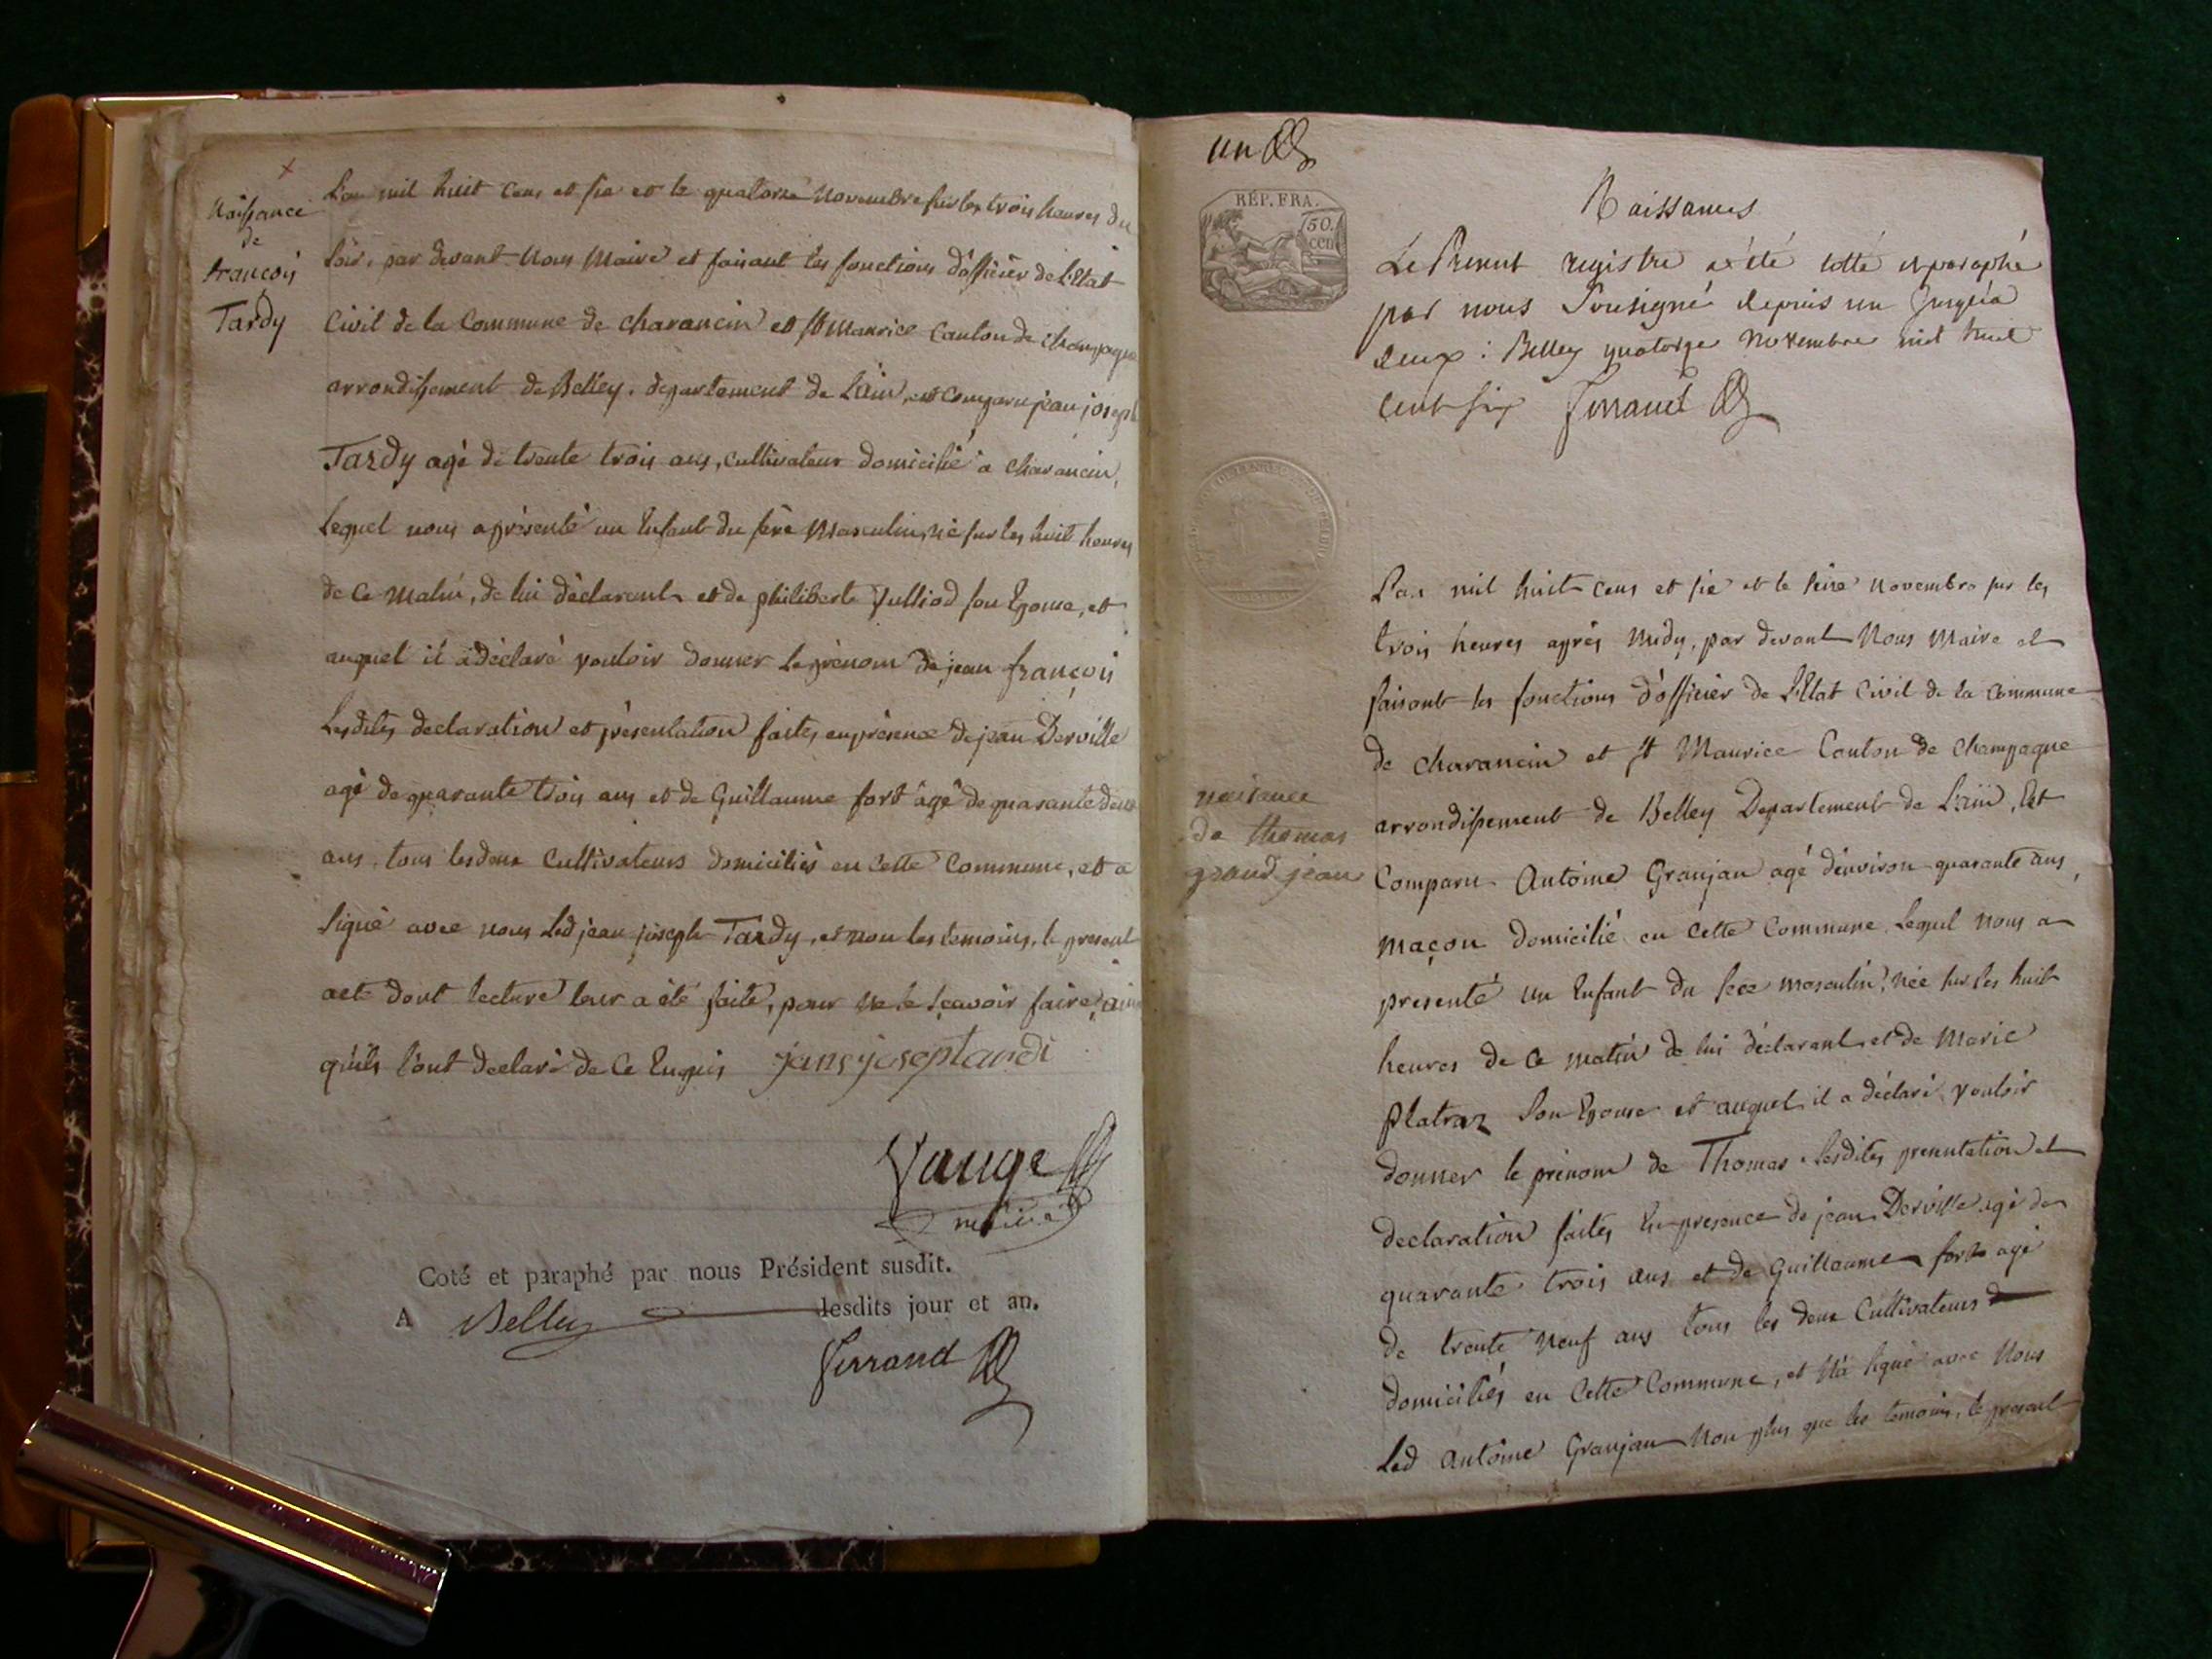 Naissance
de
françois
Tardy
L'an mil huit cens et six et le quatorze Novembre sur les trois heures du
soir, par devant Nous Maire et faisant les fonctions d'officier de L'Etat
Civil de la Commune de charancin et St Maurice Canton de Champagne
arrondissement de Belley, departement de L'ain, est comparu jean joseph
Tardy agé de trente trois ans, cultivateur domicilié a charancin,
lequel nous a présenté un Enfant du sexe Masculin, né sur les huit heures
de ce matin, de lui déclarant et de philiberte Julliod son Epouse, et
auquel il a déclaré vouloir donner le prénom de jean françois
Lesdites declaration et présentation faites en présence de jean Derville
agé de quarante trois ans et de Guillaume fort agé de quarante deux
ans, tous les deux Cultivateurs domiciliés en cette Commune, et a
signé avec nous Led jean joseph Tardy, et non les temoins, le present
acte dont lecture leur a été faite, pour ne le sçavoir faire, ainsi
qu'ils l'ont declaré de ce Enquis jansjoseptardi
Vauge
maire
Coté et paraphé par nous Président susdit.
A Belley lesdits jour et an.
Ferrand
un
RÉP. FRA.
50.
cen
Naissances
Le Present registre a été cotté et paraphé
par nous Soussigné depuis un jusqu'a
deux : Belley quatorze novembre mil huit
cent six Ferrand
naisance
de thomas
grand jean
L'an mil huit cens et six et le seize Novembre sur les
trois heures après midy, par devant Nous Maire et
faisant les fonctions d'officier de L'Etat Civil de la Commune
de charancin et St Maurice Canton de Champagne
arrondissement de Belley Departement de L'ain, Est
Comparu Antoine Granjan agé d'environ quarante ans,
maçon domicilié en cette Commune Lequel Nous a
presenté un Enfant du sexe masculin, née sur les huit
heures de ce matin de lui déclarant et de Marie
Platraz Son Epouse et auquel il a déclaré vouloir
donner le prénom de Thomas lesdites presentation et
declaration faites En presence de jean Derville agé de
quarante trois ans et de Guillaume fort agé
de trente Neuf ans tous les deux Cultivateurs
domiciliés en Cette Commune, et N'a signé avec Nous
Led Antoine Granjan Non plus que les temoins, le present